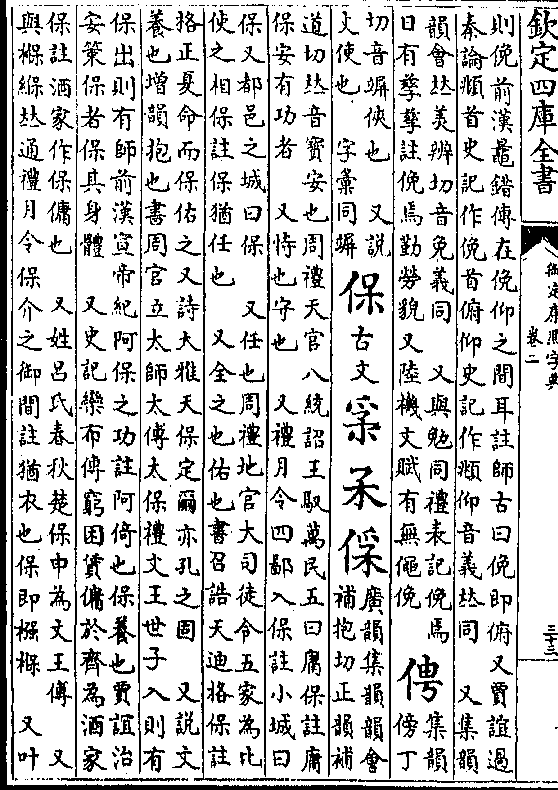 欽定四庫全書
御定康熙字典
卷二
三十三
則俛前漢鼂錯傳在俛仰之間耳註師古曰俛即俯又賈誼過
秦論頫首史記作俛首俯仰史記作頫仰音義𠀤同 又集韻
韻會𠀤美辨切音免義同 又與勉同禮表記俛焉
日有孳孳註俛焉勤勞貌又陸機文賦有無僶俛
俜
集韻
傍丁
切音竮俠也 又說
文使也 字彙同竮
保
古文
𠊻
𤔍
㑱
廣韻集韻韻會
補抱切正韻補
道切𠀤音寶安也周禮天官八統詔王馭萬民五曰庸保註庸
保安有功者 又恃也守也 又禮月令四鄙入保註小城曰
保又都邑之城曰保 又任也周禮地官大司徒令五家為比
使之相保註保猶任也 又全之也佑也書召誥天迪格保註
格正夏命而保佑之又詩大雅天保定爾亦孔之固 又說文
養也增韻抱也書周官立太師太傅太保禮文王世子入則有
保出則有師前漢宣帝紀阿保之功註阿倚也保養也賈誼治
安策保者保其身體 又史記欒布傳窮困賃傭於齊為酒家
保註酒家作保傭也 又姓呂氏春秋楚保申為文王傅 又
與褓緥𠀤通禮月令保介之御間註猶衣也保即襁褓 又叶